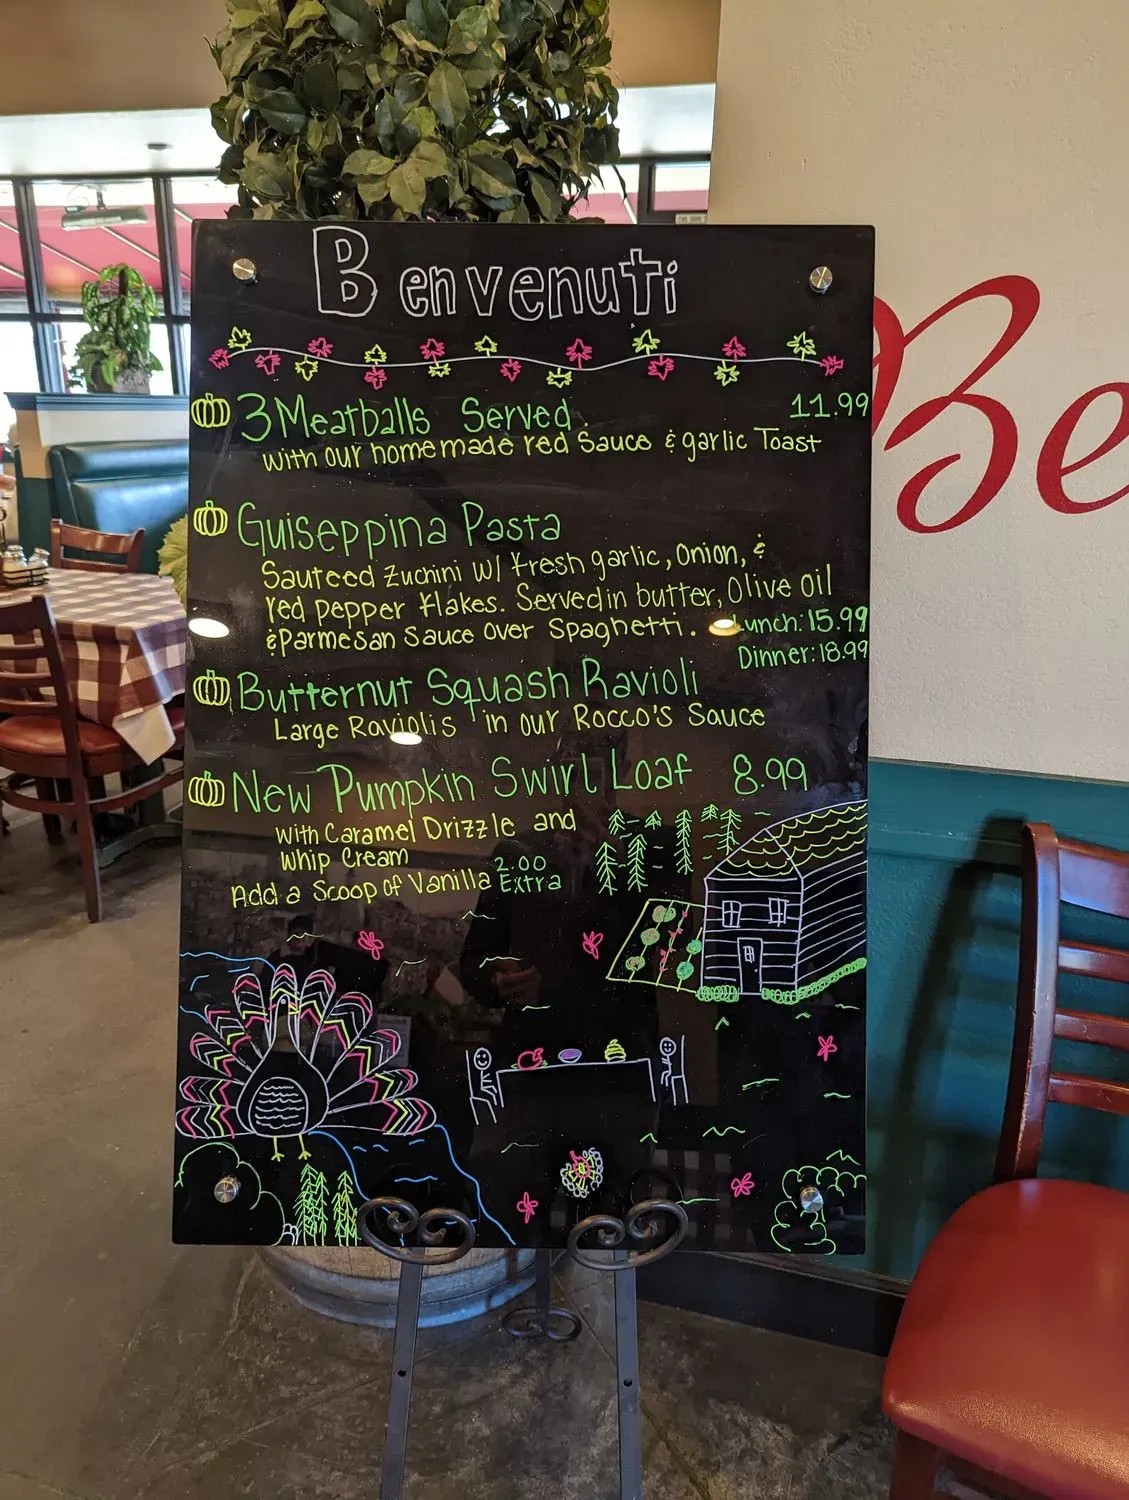 Benvenuti
3 Meatballs Served 11.99
with our homemade red Sauce & garlic Toast
Guiseppina Pasta
Sauteed Zuchini w/ fresh garlic, Onion, &
red pepper flakes. Served in butter, Olive oil
& Parmesan Sauce over Spaghetti. Lunch: 15.99
Dinner: 18.99
Butternut Squash Ravioli
Large Raviolis in our Rocco's Sauce
New Pumpkin Swirl Loaf 8.99
with Caramel Drizzle and
Whip Cream
Add a Scoop of Vanilla 2.00 Extra
Be